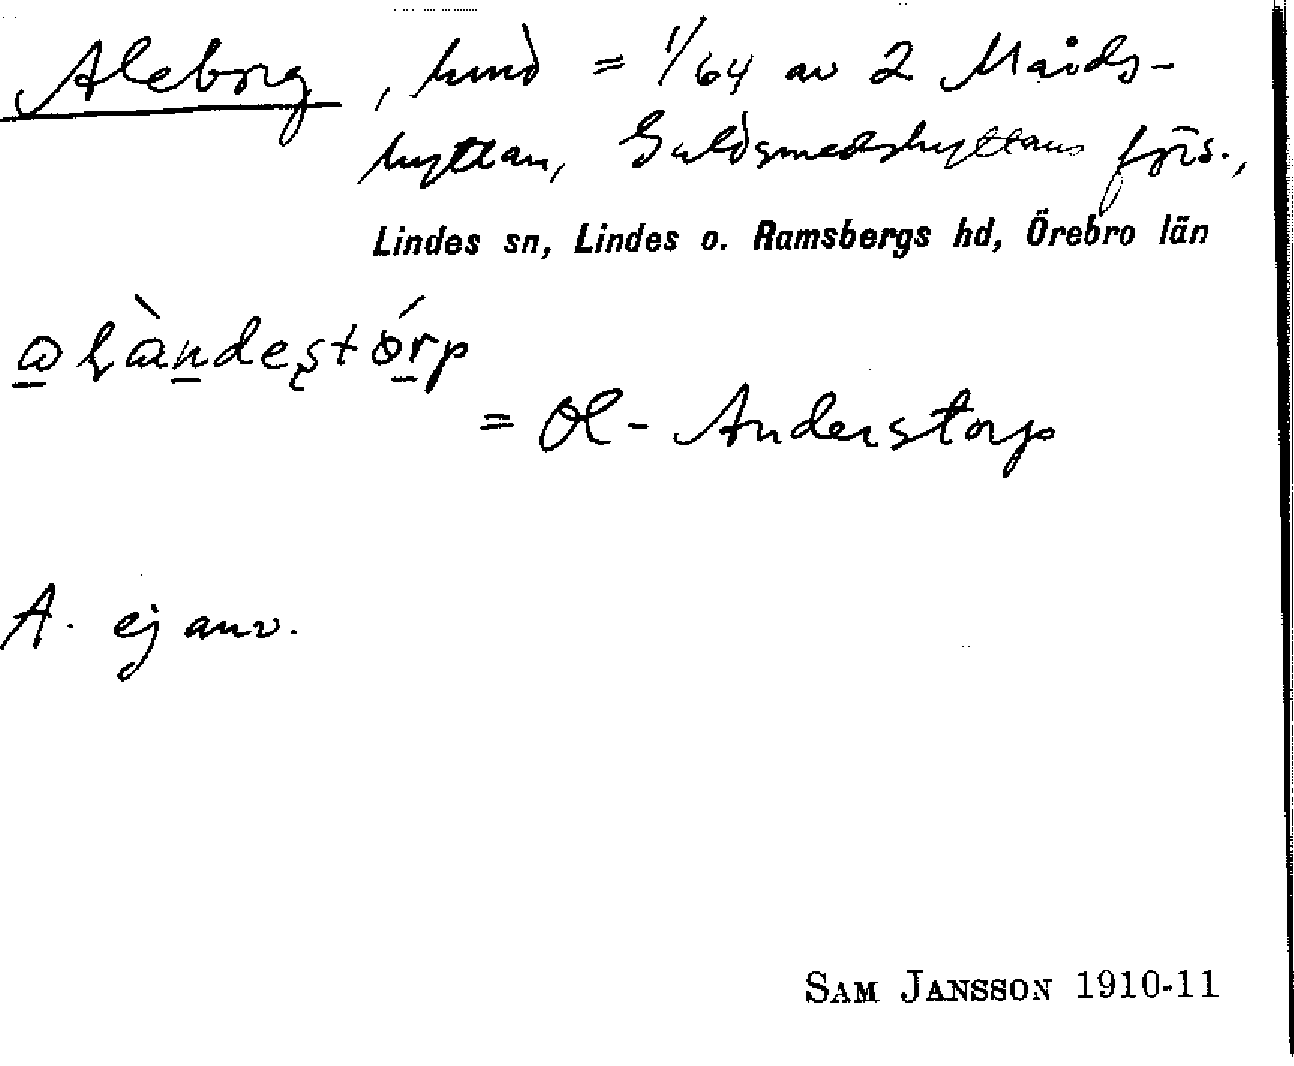 Aleborg, hmd = 1/64 av 2 Mårds-
hyttan, Guldsmedshyttans förs.,
Lindes sn, Lindes o. Ramsbergs hd, Örebro län
= Ol-Anderstorp
A. ej anv.
SAM JANSSON 1910-11